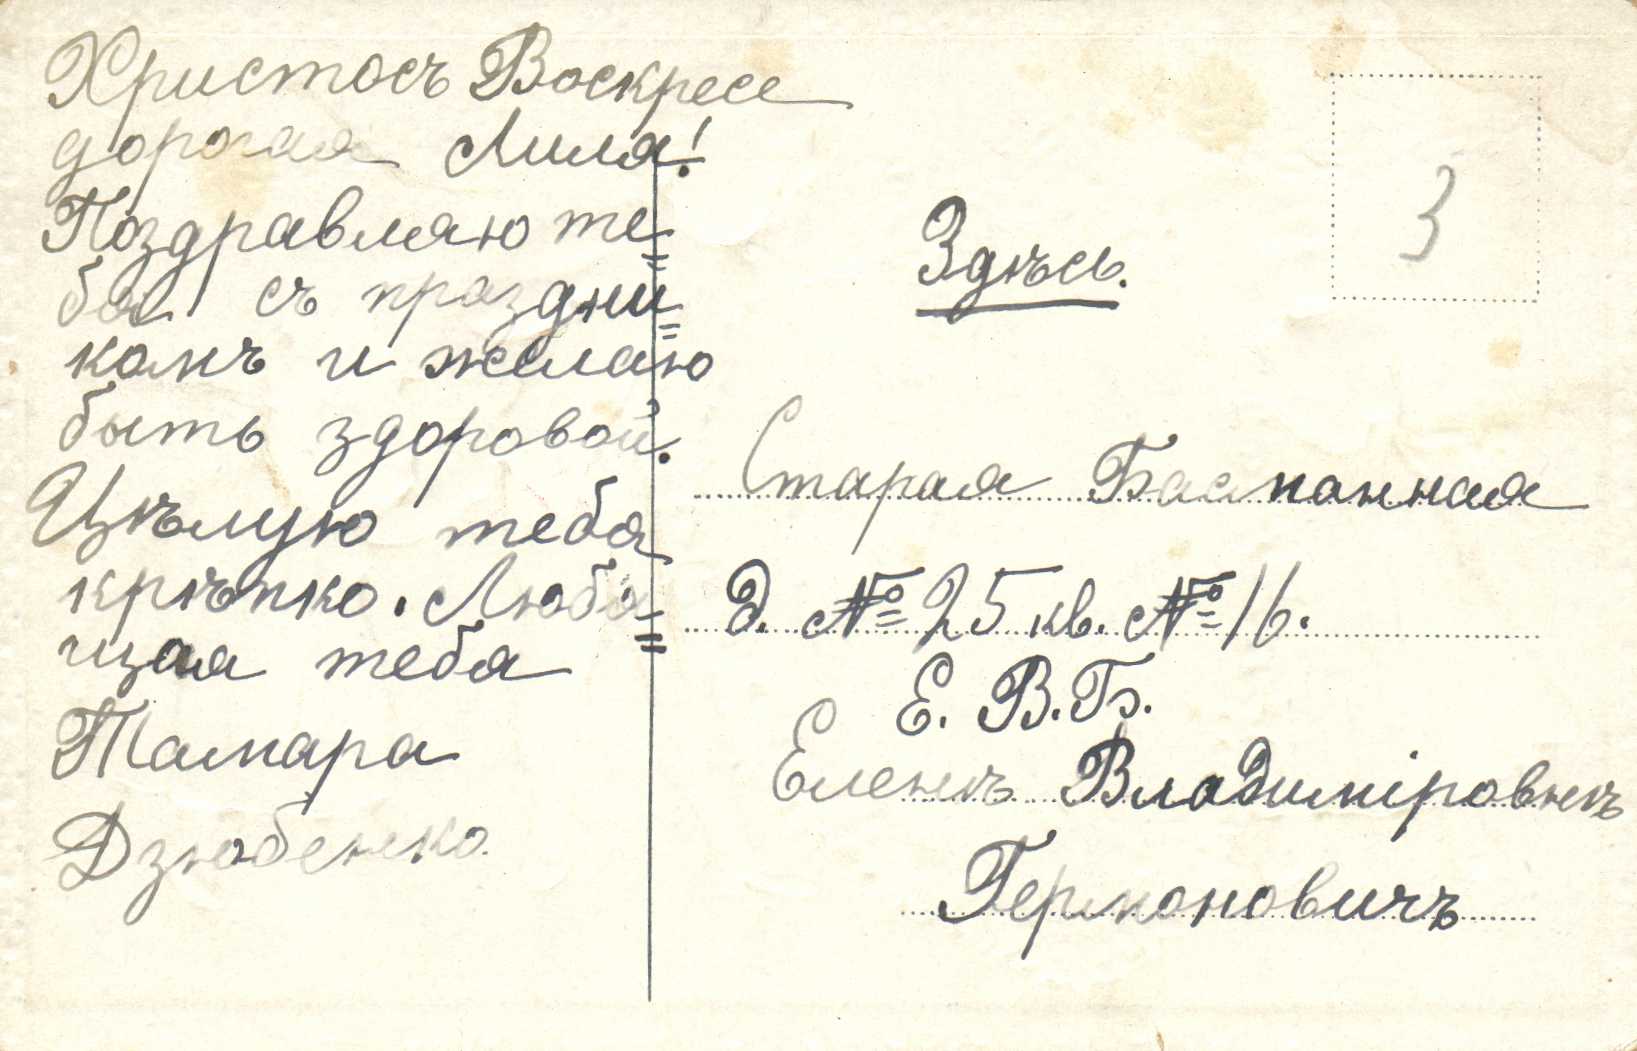 Христосъ Воскресе
дорогая Лиля!
Поздравляю те=
бя съ праздни=
комъ и желаю
быть здоровой.
Цѣлую тебя
крѣпко. Любя=
щая тебя
Тамара
Дзюбенко
3
Здѣсь.
Старая Басманная
д. № 25 кв. № 16.
Е. В. Б.
Еленѣ Владиміровнѣ
Термоновичъ